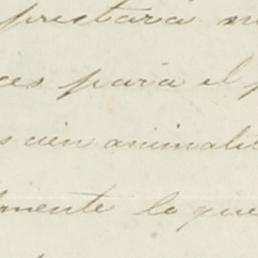 prestará
ces para el p
s cien animalit
lmente lo que